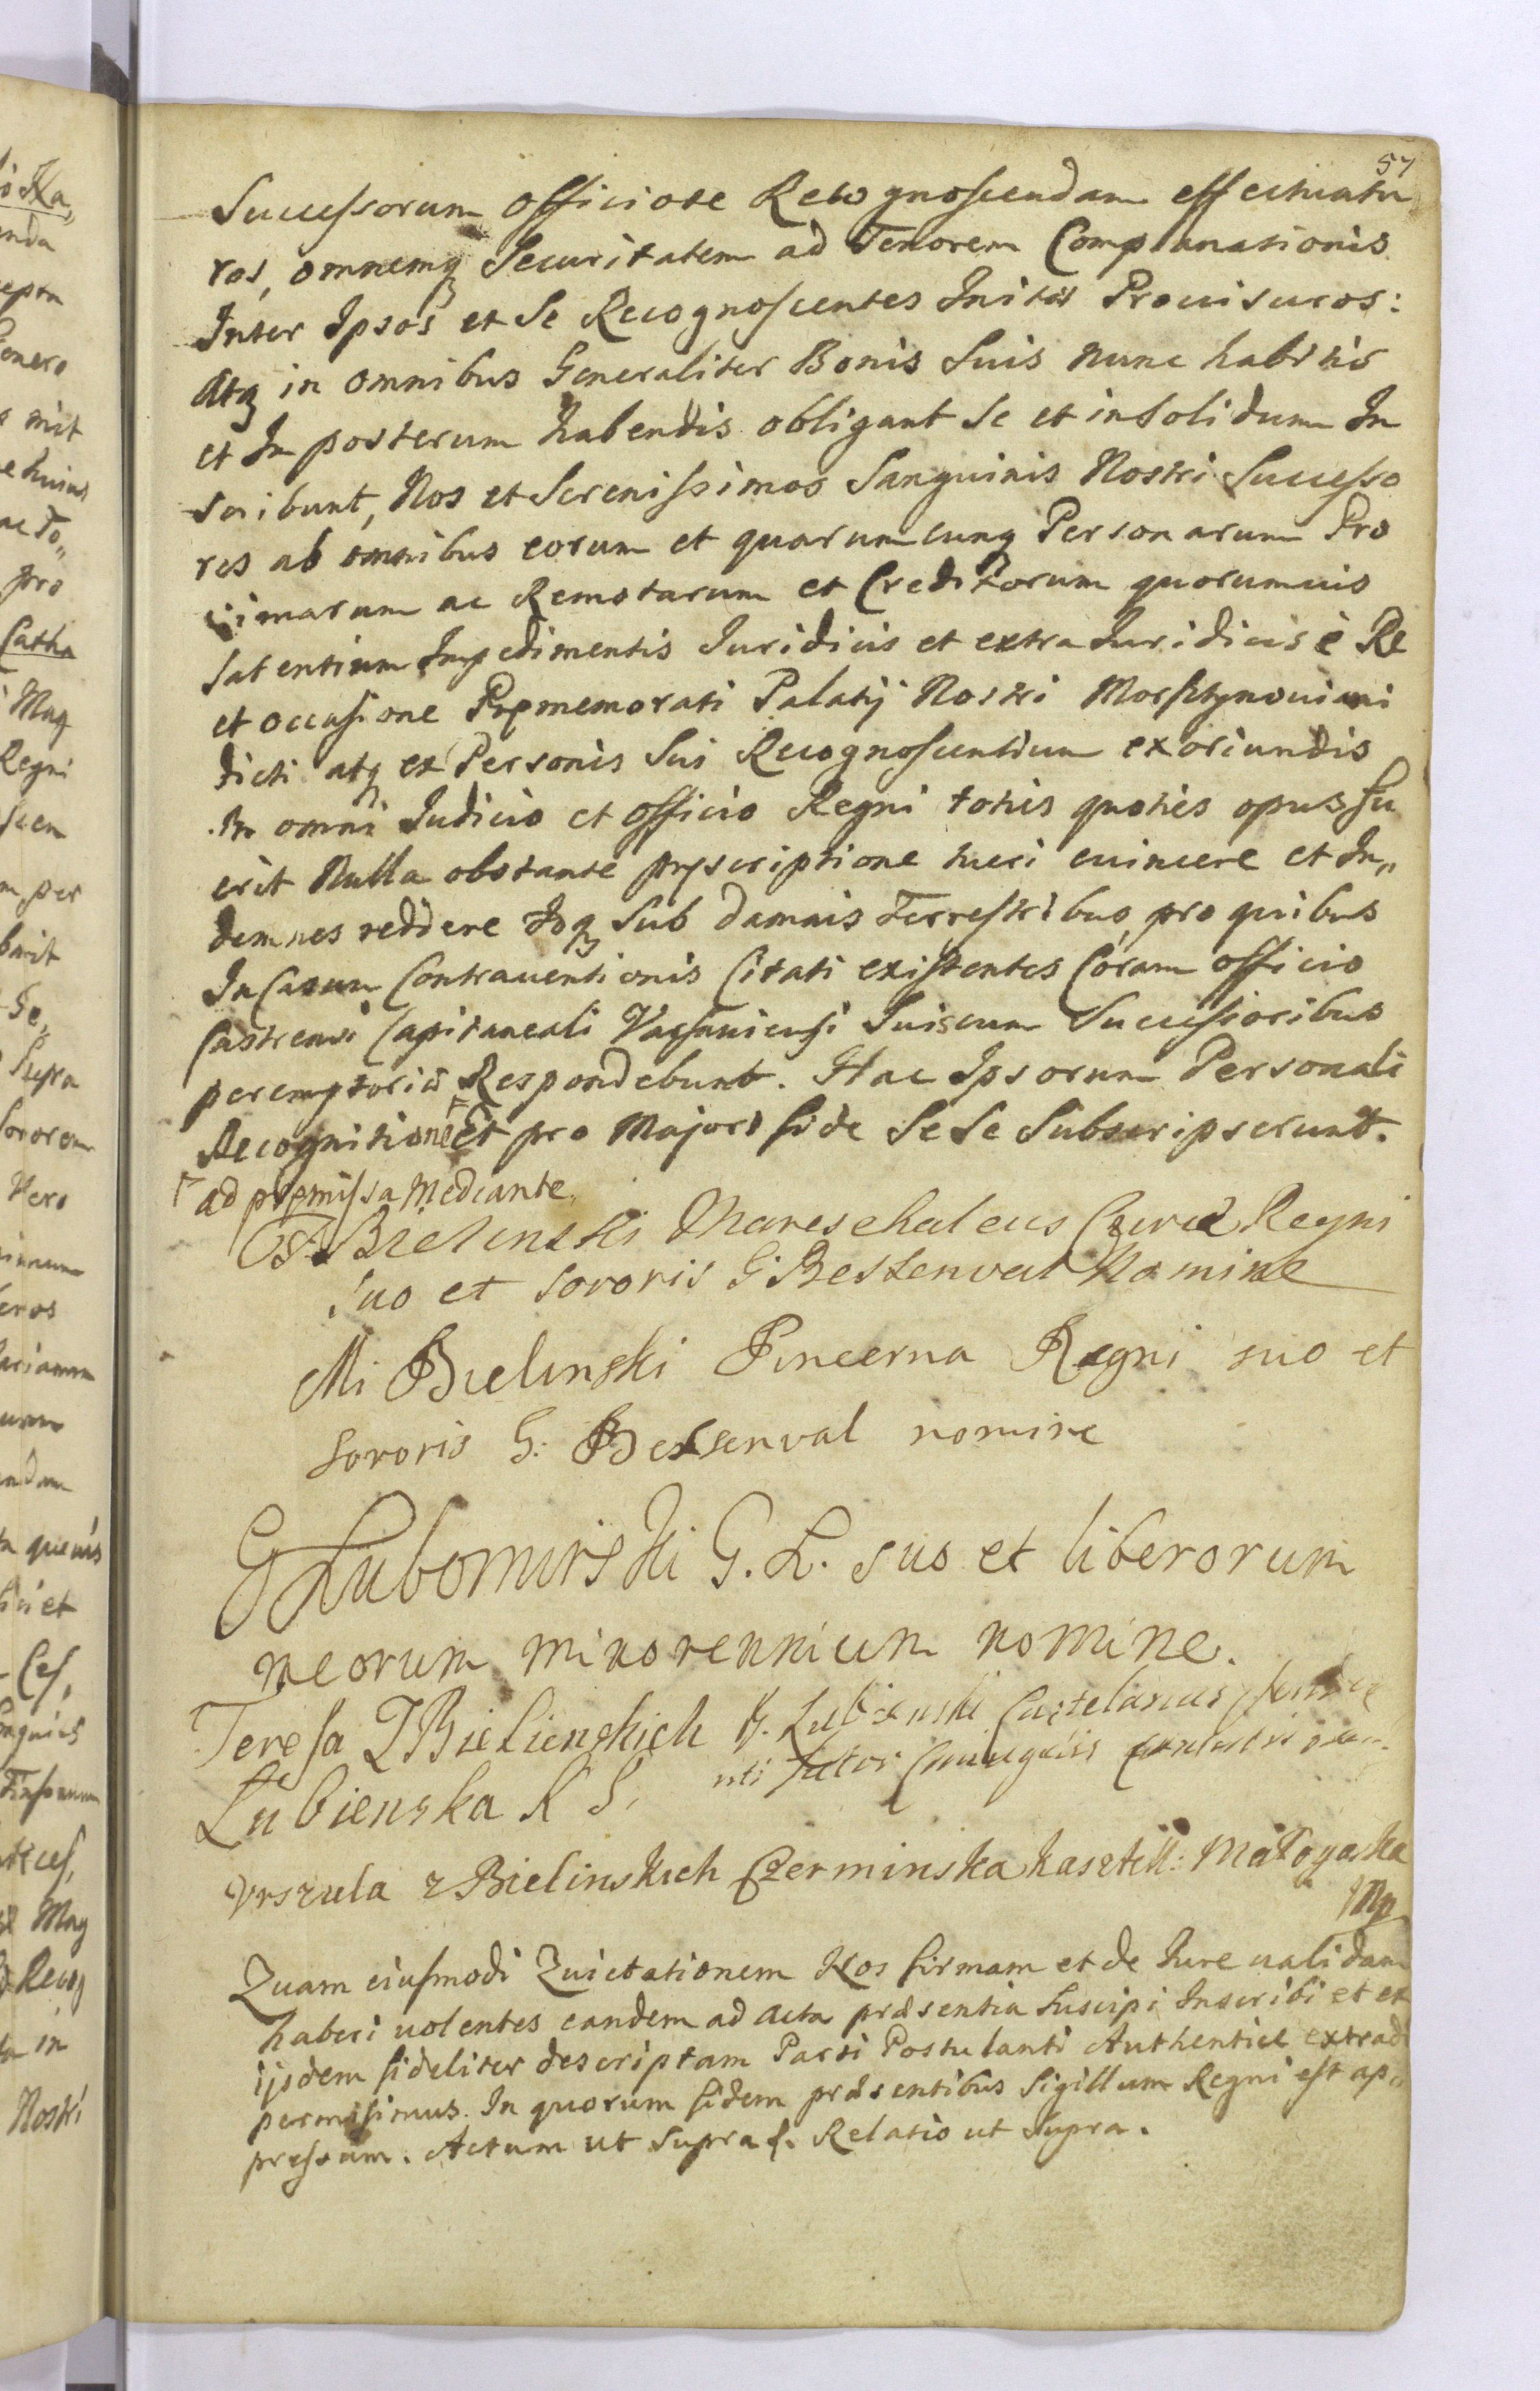 57
Successorum officiose Recognoscendam effectuatu
ros, omnemq Securitatem ad Tenorem Complanationis
Inter Ipsos et Se Recognoscentes Initæ Prouisuros:
Atq in omnibus Generaliter Bonis Suis nunc habitis
et In posterum habendis obligant Se et insolidum In
scribunt, Nos et Serenissimos Sanguinis Nostri Successo
res ab omnibus eorum et quorumcunq Personarum Pro
ximarum ac Remotarum et Creditorum quorumuis
satentium Impedimentis Iuridicis et extra Iuridicis è Re
et occasione Præmemorati Palatij Nostri Morsztynouiani
dicti atq ex Personis Sui Recognoscentium exoriundis
In omni Iudicio et officio Regni toties quoties opus fu
erit Nulla obstante præscriptione tueri euincere et In„
demnes reddere Idq Sub damnis Terrestribus, pro quibus
In Casum Contrauentionis Citati existentes Coram officio
Castrensi Capitaneali Varsauiensi Suis cum Successoribus
peremptorie Respondebunt. Hac Ipsorum Personali
Recognitione Et pro Majori fide Se Se Subscripserunt.
ad præmissa Mediante
F Bielinski Mareschalcus Curiæ Regni
suo et sororis G Bessenval Nomine
Mi Bielinski Pincerna Regni suo et
sororis G: Bessenval nomine
G Lubomirski G. L. suo et liberorum
meorum minorennium nomine.
Teresa Z Bielienskich
Lubienska K S.
Lubienski Castelanus
uti Tutor
Vrszula z Bielinskich Czerminska kasztell: Małogoska
Mp
Quam eiusmodi Quietationem Nos firmam et de Iure ualidam
haberi uolentes eandem ad Acta præsentia Suscipi Inscribi et ex
ijsdem fideliter descriptam Parti Postulanti Authentice extradi
permisimus. In quorum fidem præsentibus Sigillum Regni est ap„
pressum. Actum ut Supra. Relatio ut Supra.